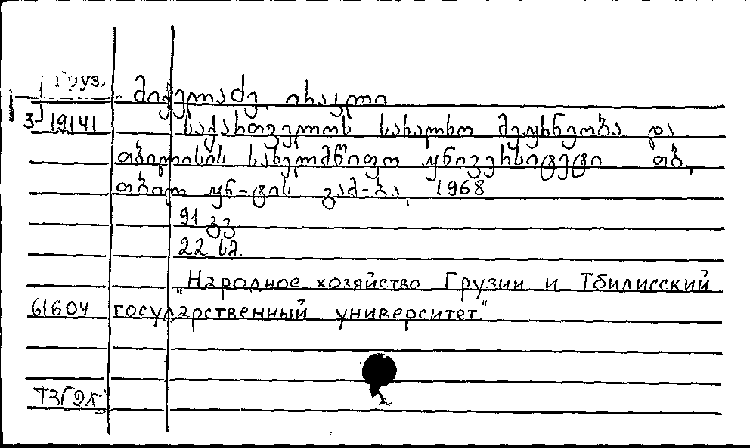 Груз. მიქელაძე ირაკლი
3 19141 საქართველოს სახალხო მეურნეობა და
თბილისის სახელმწიფო უნივერსიტეტი თბ.,
თბილ. უნ-ტის გამ-ბა, 1968
91 გვ.
22 სმ.
"Народное хозяйство Грузии и Тбилисский
61604 государственный университет"